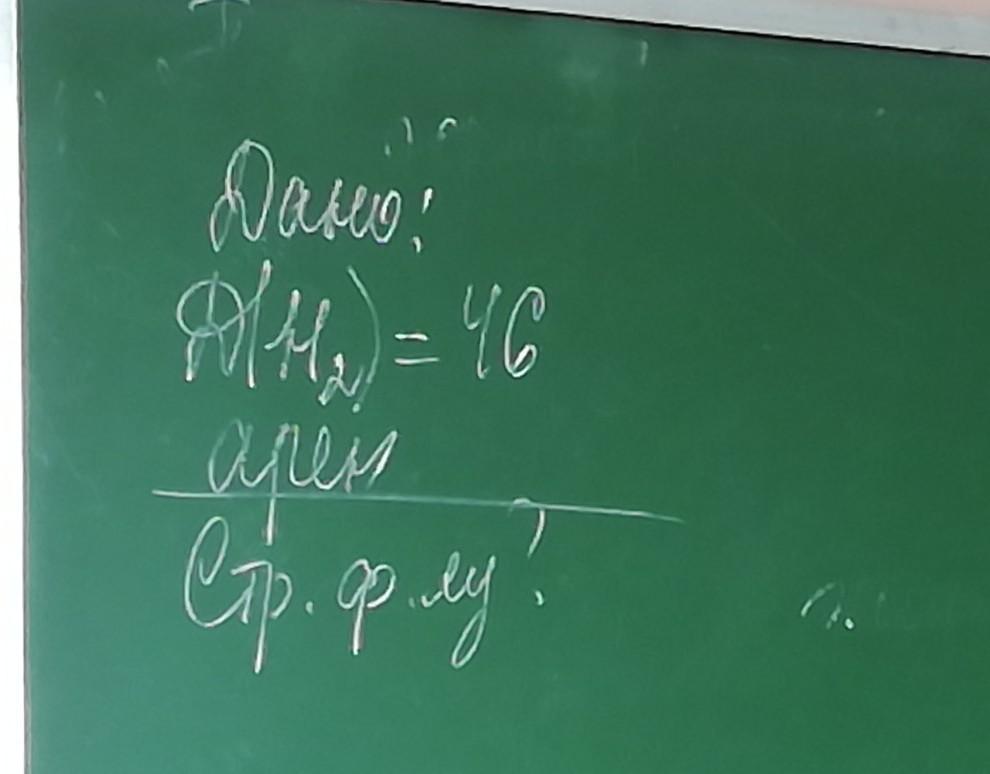 Дано:
D(H₂) = 46
арен
Стр. ф.лу?